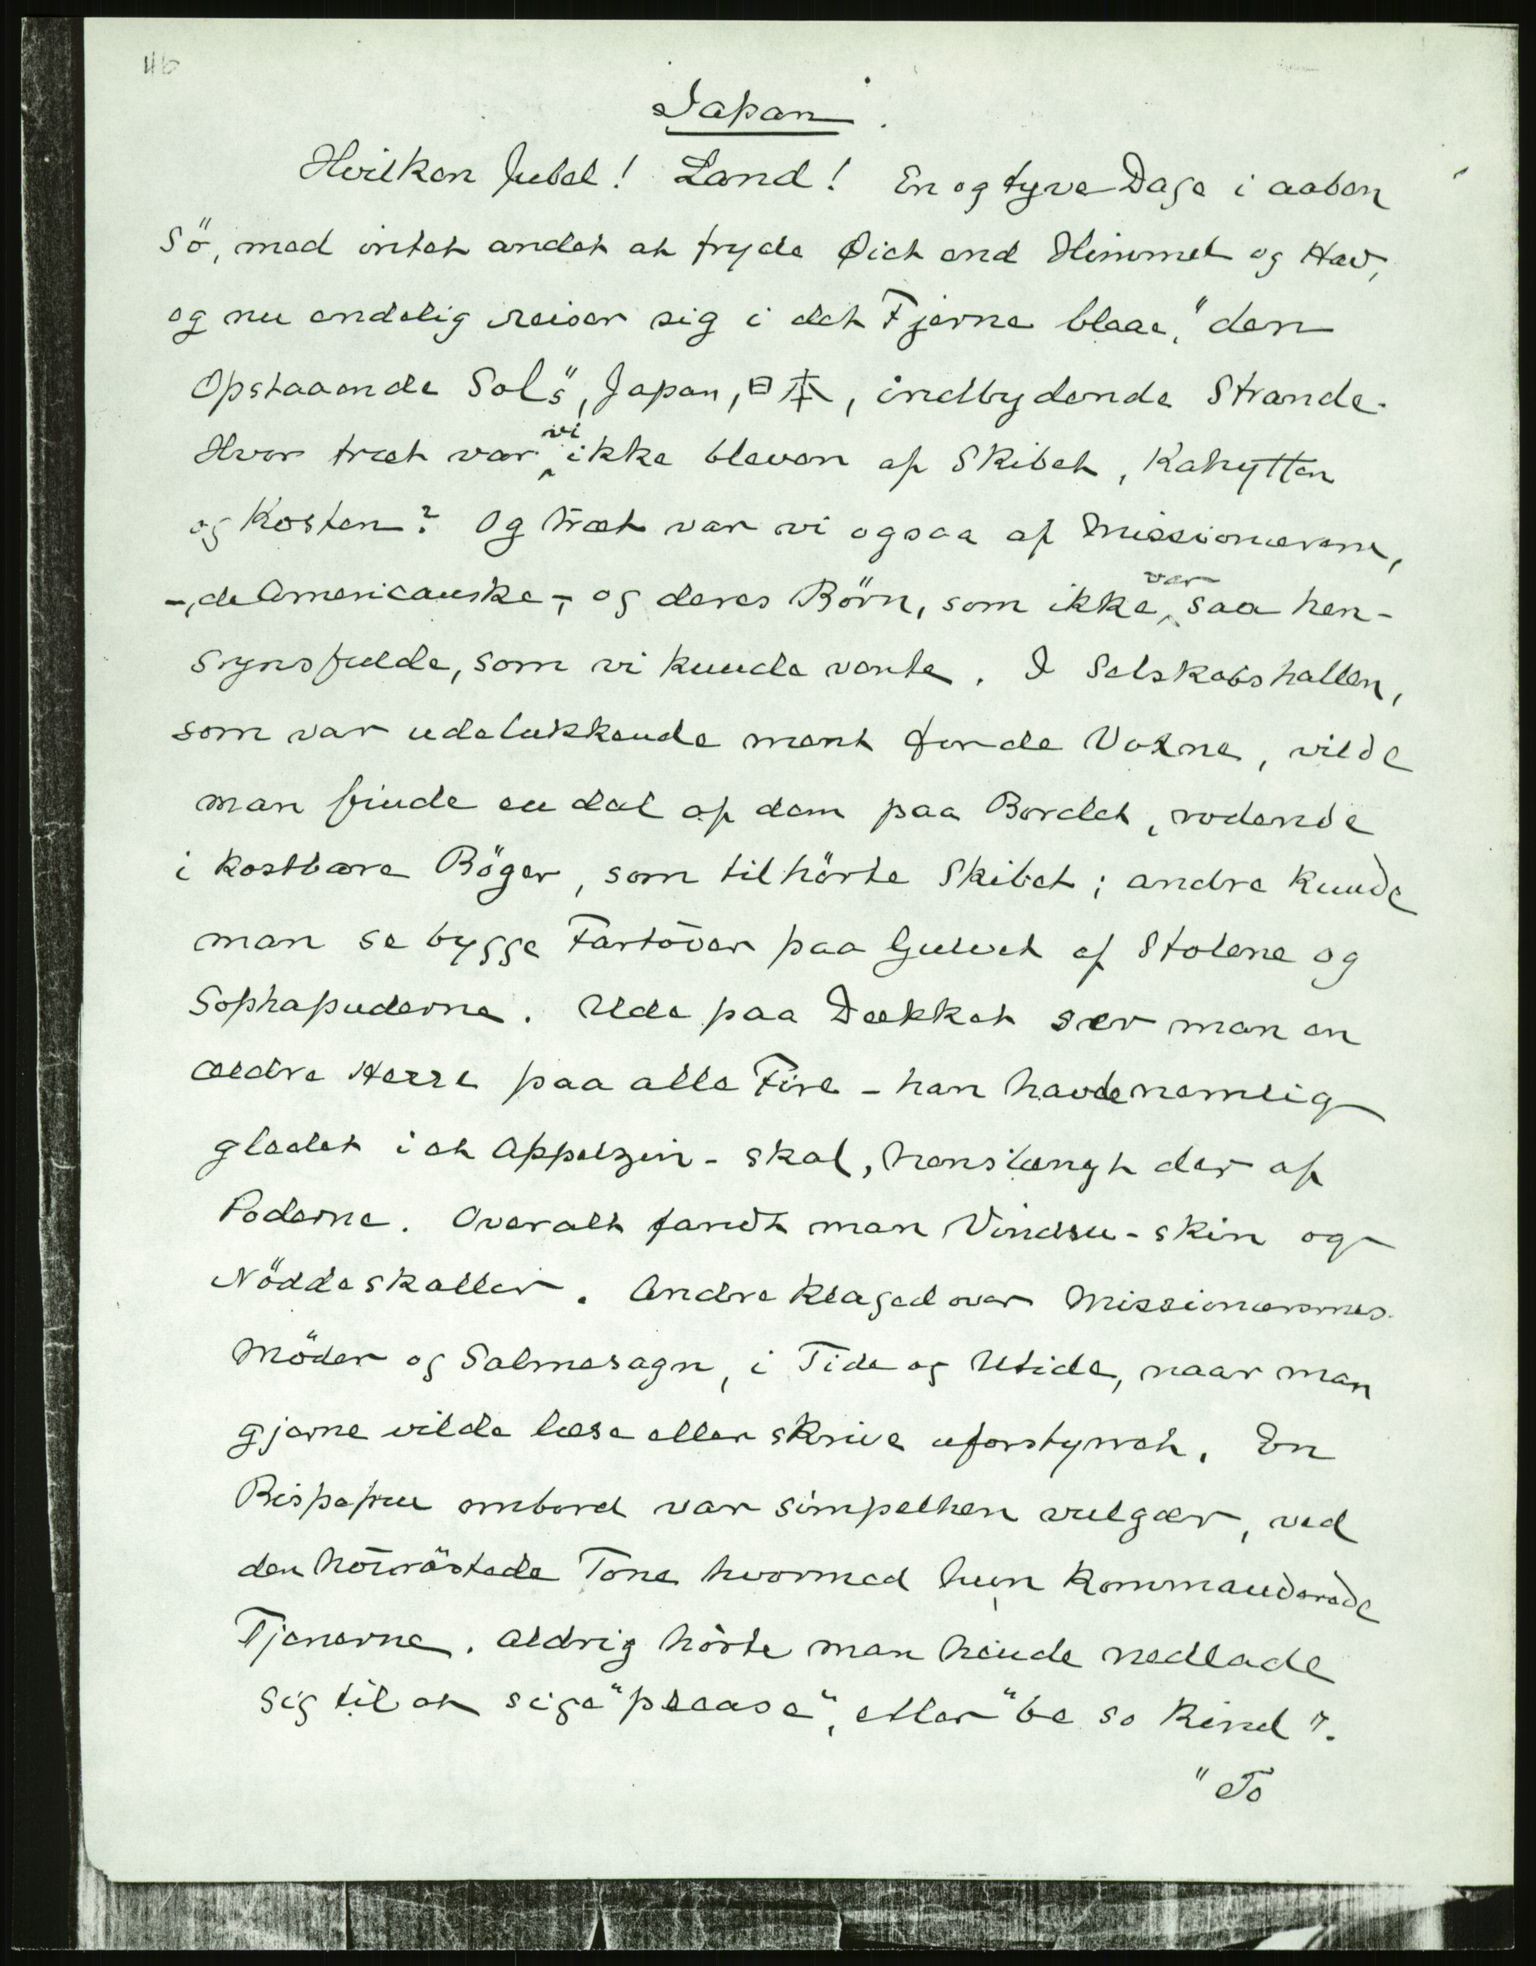 116
Japan.
Hvilken Jubel! Land! En og tyve Dage i aaben
Sö, med intet andet at fryde Øiet end Himmel og Hav,
og nu endelig reiser sig i det Fjerne blaae, "den
Opstaaende Sol"s, Japan, 日本, indbydende Strande.
Hvor træt var vi ikke bleven af Skibet, Kahytten
og Kosten? Og træt var vi ogsaa af Missionærerne,
-, de Americanske -, og deres Börn, som ikke var saa hen-
synsfulde, som vi kunde vente. I Selskabshallen,
som var udelukkende ment for de Voxne, vilde
man finde en del af dem paa Bordet, rodende
i kostbare Böger, som tilhörte Skibet; andre kunde
man se bygge Fartöier paa Gulvet af Stolene og
Sophapuderne. Ude paa Dækket ser man en
ældre Herre paa alle Fire - han havde nemlig
gledet i et Appelzin-skal, henslængt der af
Poderne. Overalt fandt man Vindru-skin og
Nöddeskaller. Andre klaged over Missionærernes
Möder og Salmesagn, i Tide og Utide, naar man
gjerne vilde læse eller skrive uforstyrret. En
Bispefrue ombord var simpelthen vulgær, ved
den höiröstede Tone hvormed hun kommanderede
Tjenerne. Aldrig hörte man hende nedlade
sig til at sige "please", eller "be so kind".
"To